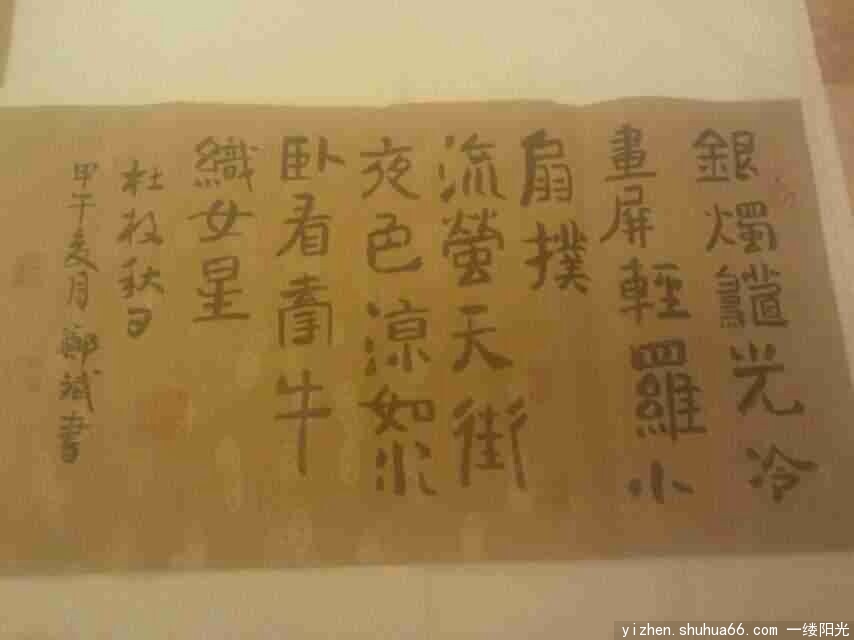 銀燭光冷
畫屏輕羅小
扇撲
流螢天街
夜色涼如水
卧看牽牛
織女星
杜牧秋日
甲午亥月鄭斌書
yizhen.shuhua66.com 一缕阳光